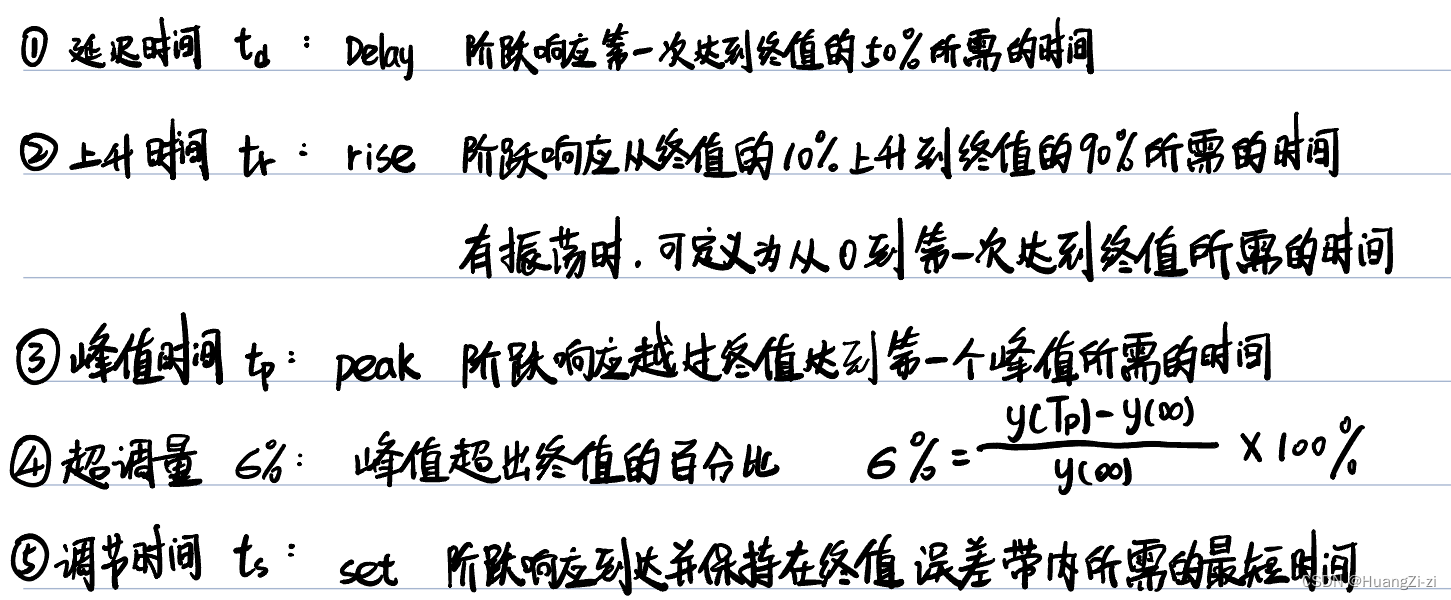 ① 延迟时间 td : Delay 阶跃响应第一次达到终值的50%所需的时间
② 上升时间 tr : rise 阶跃响应从终值的10%上升到终值的90%所需的时间
有振荡时,可定义为从0到第一次达到终值所需的时间
③ 峰值时间 tp : peak 阶跃响应越过终值达到第一个峰值所需的时间
④ 超调量 6% : 峰值超出终值的百分比 6% = y(Tp)-y(∞) / y(∞) × 100%
⑤ 调节时间 ts : set 阶跃响应到达并保持在终值 误差带内所需的最短时间
CSDN @HuangZi-zi